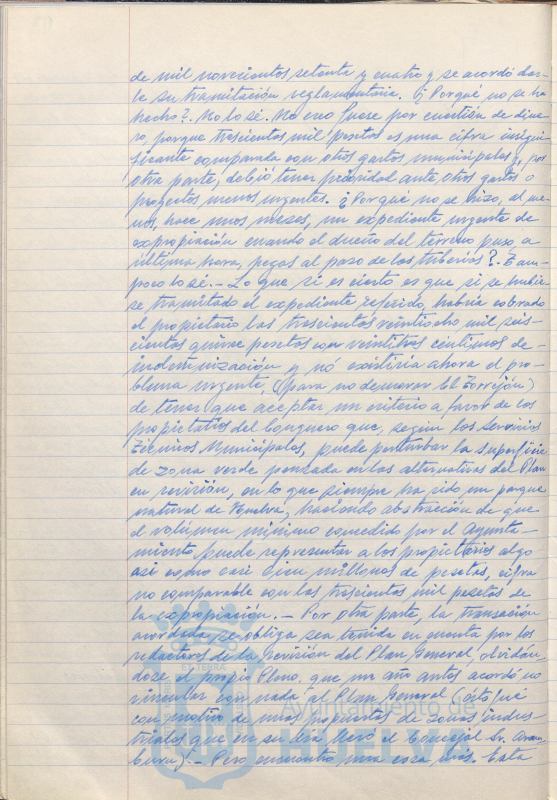 de mil novecientos setenta y cuatro y se acordó dar-
le su tramitación reglamentaria. ¿Porqué no se ha
hecho?. No lo sé. No creo fuese por cuestión de dine-
ro, porque trescientas mil pesetas es una cifra insigni-
ficante comparada con otros gastos municipales y, por
otra parte, debió tener prioridad ante otros gastos o
proyectos menos urgentes. ¿Porqué no se hizo, al me-
nos, hace unos meses, un expediente urgente de
expropiación cuando el dueño del terreno puso, a
última hora, pegas al paso de las tuberías?. Tam-
poco lo sé.- Lo que sí es cierto es que si se hubie-
se tramitado el expediente referido, habría cobrado
el propietario las trescientas veintiocho mil seis-
cientas quince pesetas con veintitres céntimos de-
indemnización y nó existiría ahora el pro-
blema urgente, (para no demorar El Torrejón)
de tener que aceptar un criterio a favor de los
propietarios del Conquero que, según los Servicios
Técnicos Municipales, puede perturbar la superficie
de zona verde pensada en las alternativas del Plan
en revisión, en lo que siempre ha sido un parque
natural de Huelva, haciendo abstracción de que
el volúmen mínimo concedido por el Ayunta-
miento puede representar a los propietarios algo
así como casi cien millones de pesetas, cifra
no comparable con las trescientas mil pesetas de
la expropiación.- Por otra parte, la transacción
acordada se obliga sea tenida en cuenta por los
redactores de la revisión del Plan General, olvidán-
dose, el propio Pleno, que un año antes acordó no
vincular con nada el Plan General (ésto fué
con motivo de unas propuestas de zonas indus-
triales que en su día hizo el Concejal Sr. Aram-
buru).- Pero encuentro una cosa más. Esta
Ayuntamiento de
HUELVA